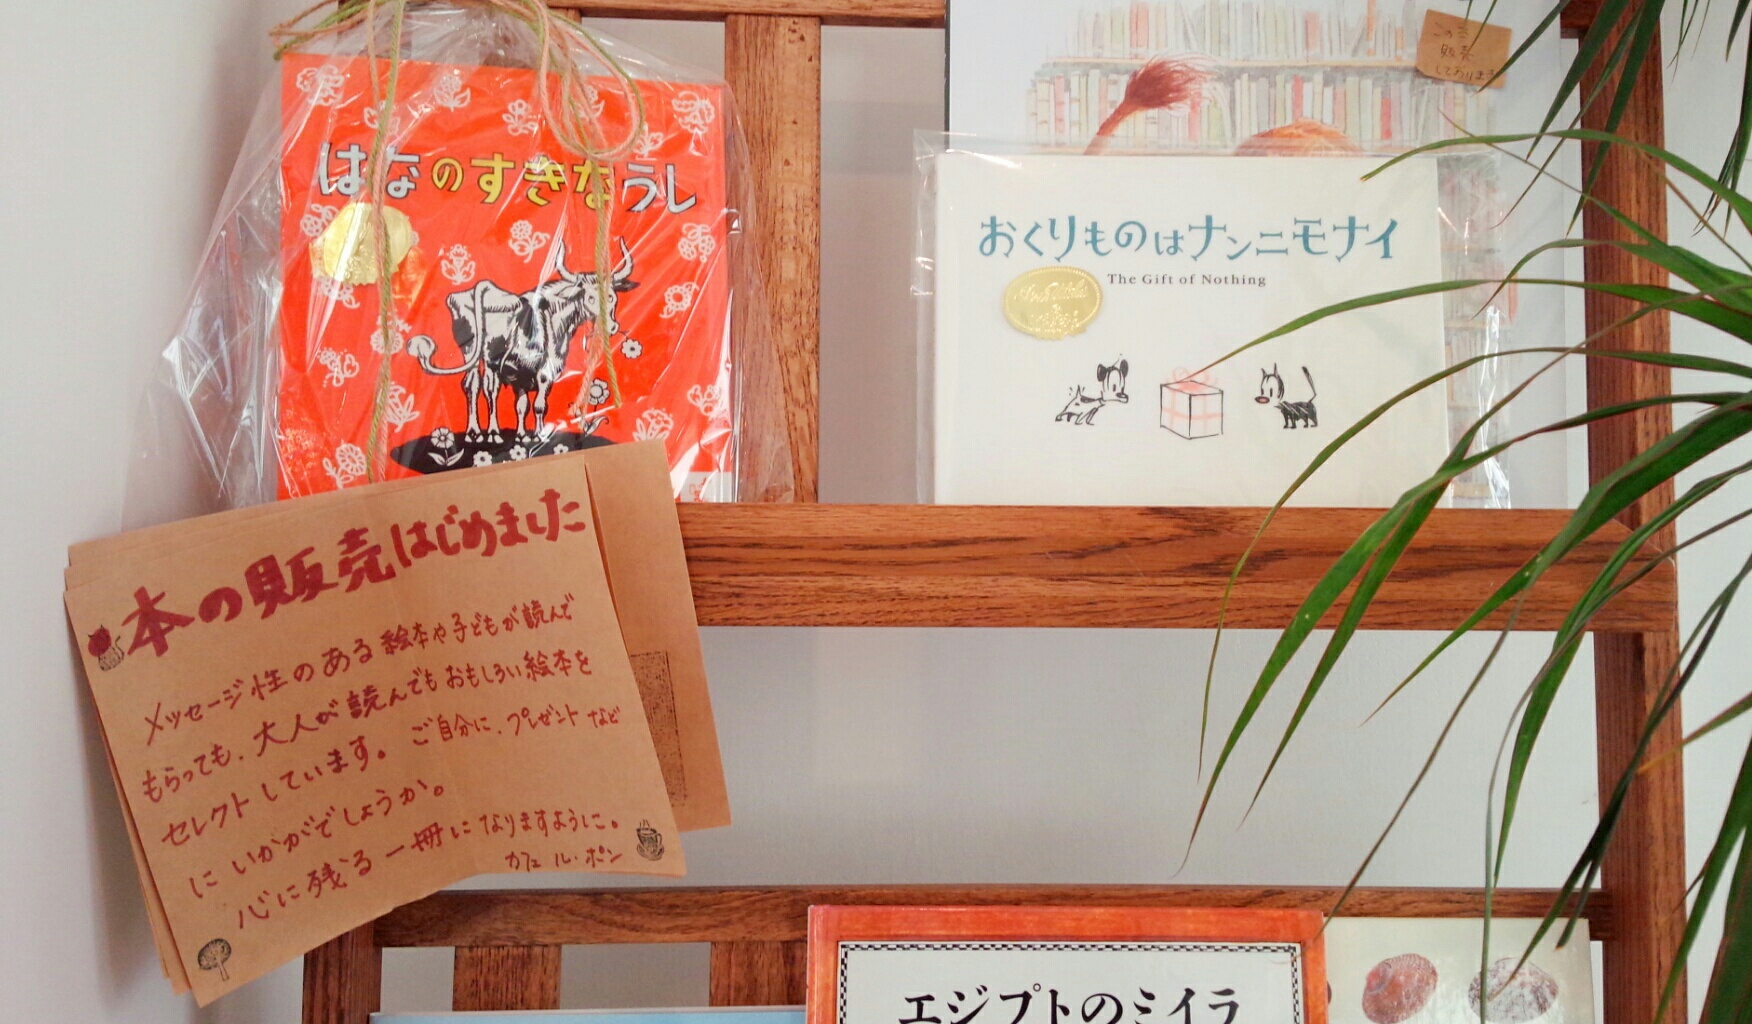 はなのすきなうし
おくりものはナンニモナイ
The Gift of Nothing
この本
販売
しております
本の販売はじめました
メッセージ性のある絵本や子どもが読んで
もらっても、大人が読んでもおもしろい絵本を
セレクトしています。ご自分に、プレゼントなど
にいかがでしょうか。
心に残る一冊になりますように。
カフェ ル・ポン
エジプトのミイラ